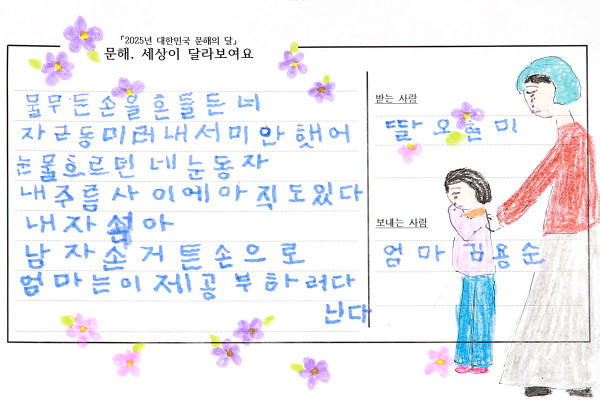 「2025년 대한민국 문해의 달」
문해, 세상이 달라보여요
물무든손을흔들든너
자근동미러내서미안햇어
눈물흐르던 네눈동자
내주름사이에아직도있다
내자섬아
남자손거튼손으로
엄마는이제공부하러다
닌다
받는 사람
딸오현미
보내는 사람
엄마 김용순